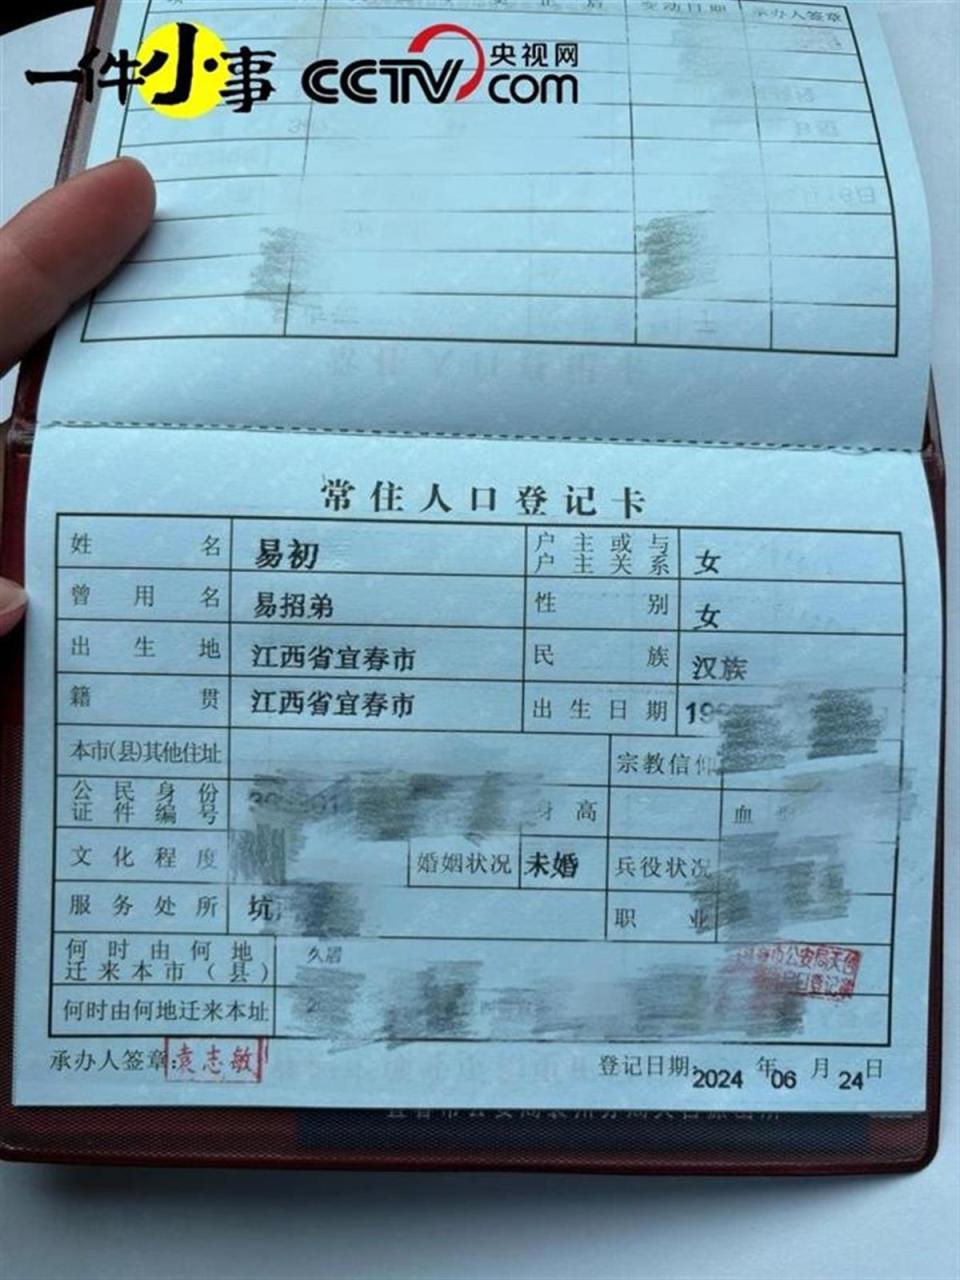 项 正后 变动日期 承办人签章
一件小事 CCTV.com 央视网
常住人口登记卡
姓名 易初 户主或与户主关系 女
曾用名 易招弟 性别 女
出生地 江西省宜春市 民族 汉族
籍贯 江西省宜春市 出生日期 19
本市(县)其他住址 宗教信仰
公民身份证件编号 身高 血
文化程度 婚姻状况 未婚 兵役状况
服务处所 坑 职业
何时由何地迁来本市(县) 久居
何时由何地迁来本址 2
承办人签章: 袁志敏 登记日期: 2024 年 06 月 24 日